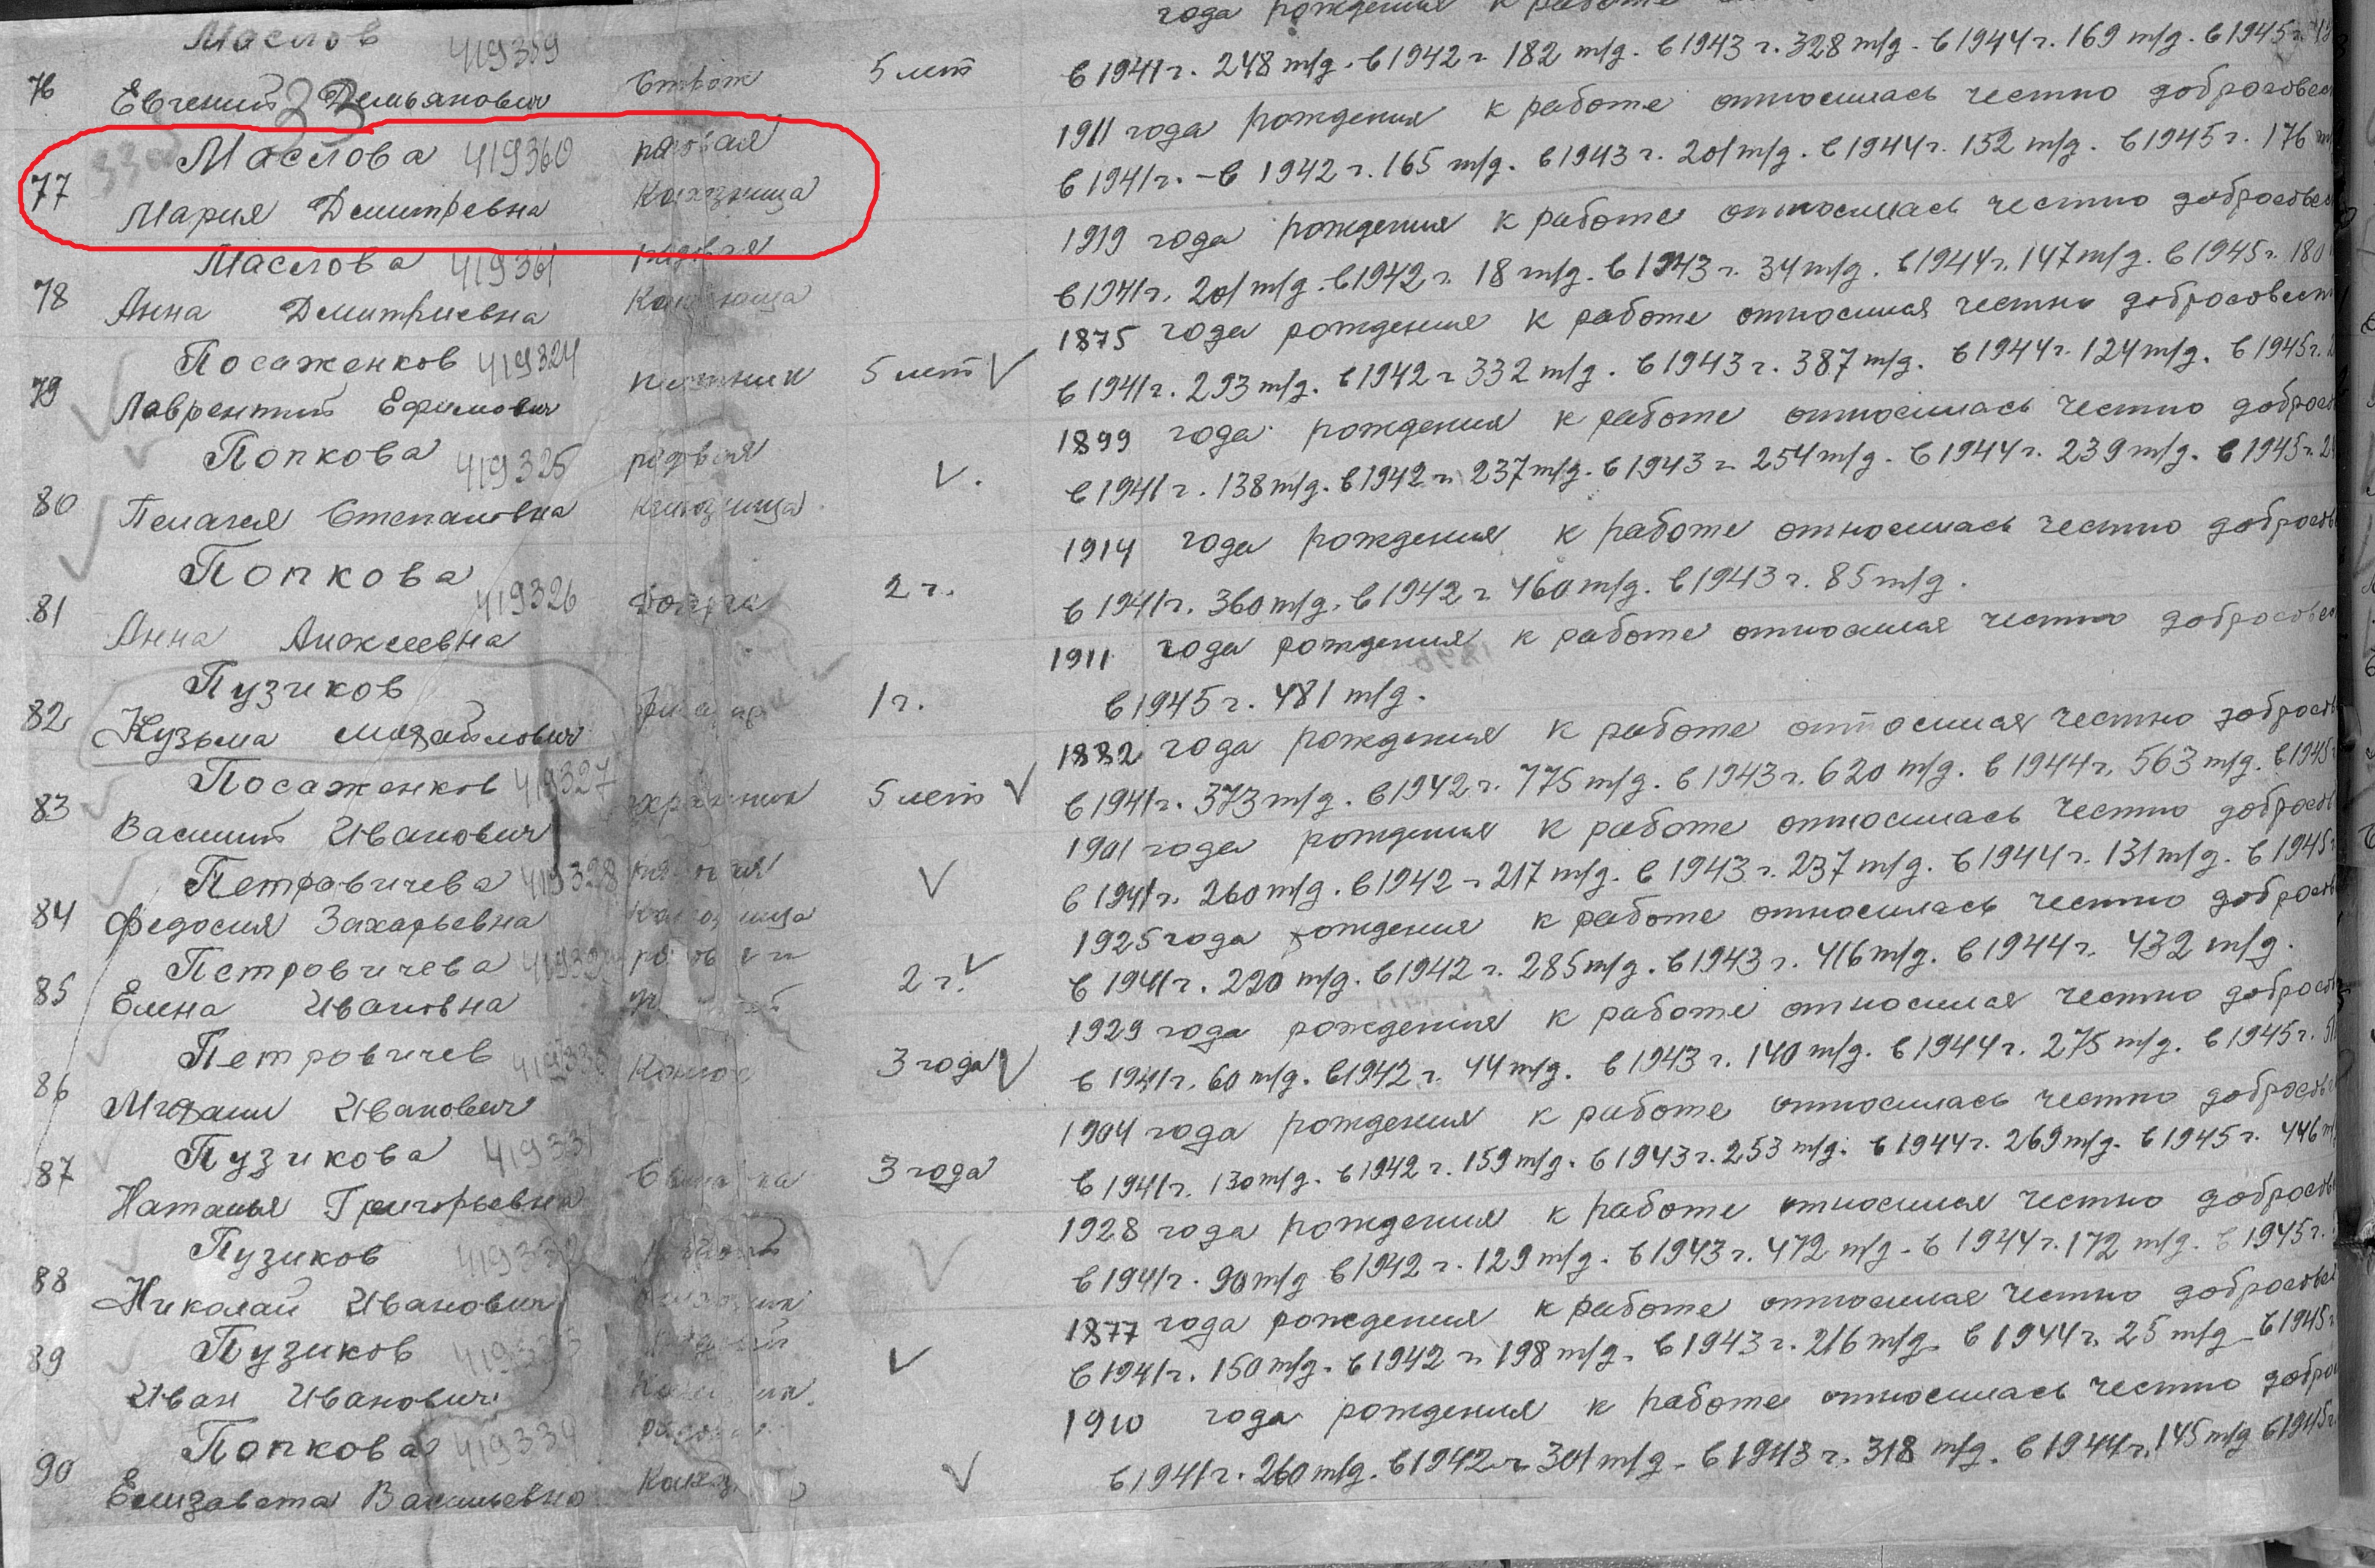 года рождения к работе
Маслов 419359
76 Евгений Демьянович сторож 5 лет в 1941 г. 248 т/д. в 1942 г. 182 т/д. в 1943 г. 328 т/д. в 1944 г. 169 т/д. в 1945 г.
33
1911 года рождения к работе относилась честно добросовес
Маслова 419360 рядовая
77 Мария Дмитревна колхозница в 1941 г. - в 1942 г. 165 т/д. в 1943 г. 201 т/д. в 1944 г. 152 т/д. в 1945 г. 176
1919 года рождения к работе относилась честно добросовес
Маслова 419361 рядовая
78 Анна Дмитриевна колхозница в 1941 г. 201 т/д. в 1942 г. 18 т/д. в 1943 г. 34 т/д. в 1944 г. 147 т/д. в 1945 г. 180
1875 года рождения к работе относился честно добросовест
Посаженков 419324
79 Лаврентий Ефимович плотник 5 лет в 1941 г. 293 т/д. в 1942 г 332 т/д. в 1943 г. 387 т/д. в 1944 г. 124 т/д. в 1945 г.
1899 года рождения к работе относилась честно добросо
Попкова 419325 рядовая
80 Пелагея Степановна колхозница в 1941 г. 138 т/д. в 1942 г. 237 т/д. в 1943 г. 254 т/д. в 1944 г. 239 т/д. в 1945 г.
1914 года рождения к работе относилась честно добросов
Попкова 419326
81 Анна Алексеевна 2 г. в 1941 г. 360 т/д. в 1942 г. 460 т/д. в 1943 г. 85 т/д.
1911 года рождения к работе относился честно добросовес
Пузиков
82 Кузьма Михайлович 1 г. в 1945 г. 481 т/д.
1882 года рождения к работе относился честно добросов
Посаженков 419327
83 Василий Иванович 5 лет в 1941 г. 373 т/д. в 1942 г. 775 т/д. в 1943 г. 620 т/д. в 1944 г. 563 т/д. в 1945
1901 года рождения к работе относилась честно добросов
Петровичева 419328 рядовая
84 Федосия Захарьевна колхозница в 1941 г. 260 т/д. в 1942 г 217 т/д. в 1943 г. 237 т/д. в 1944 г. 131 т/д. в 1945
1925 года рождения к работе относилась честно добросов
Петровичева
85 Елена Ивановна 2 г. в 1941 г. 220 т/д. в 1942 г. 285 т/д. в 1943 г. 416 т/д. в 1944 г. 432 т/д.
1929 года рождения к работе относился честно добросов
Петровичев 419330
86 Михаил Иванович конюх 3 года в 1941 г. 60 т/д. в 1942 г. 44 т/д. в 1943 г. 140 т/д. в 1944 г. 275 т/д. в 1945 г.
1904 года рождения к работе относилась честно добросов
Пузикова 419331
87 Наталья Григорьевна 3 года в 1941 г. 130 т/д. в 1942 г. 159 т/д. в 1943 г. 253 т/д. в 1944 г. 269 т/д. в 1945 г. 446
1928 года рождения к работе относился честно добросов
Пузиков 419332 рядовой
88 Николай Иванович колхозник в 1941 г. 90 т/д в 1942 г. 129 т/д. в 1943 г. 472 т/д. в 1944 г. 172 т/д. в 1945 г.
1877 года рождения к работе относился честно добросовес
Пузиков 419333 рядовой
89 Иван Иванович колхозник в 1941 г. 150 т/д. в 1942 г. 198 т/д. в 1943 г. 216 т/д. в 1944 г. 25 т/д в 1945
1910 года рождения к работе относилась честно добро
Попкова 419334 рядовая
90 Елизавета Васильевна колхоз в 1941 г. 260 т/д. в 1942 г. 301 т/д. в 1943 г. 318 т/д. в 1944 г. 145 т/д в 1945 г.